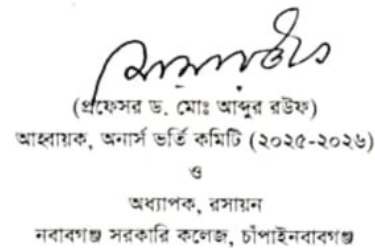 (প্রফেসর ড. মোঃ আব্দুর রউফ)
আহ্বায়ক, অনার্স ভর্তি কমিটি (২০২৫-২০২৬)
ও
অধ্যাপক, রসায়ন
নবাবগঞ্জ সরকারি কলেজ, চাঁপাইনবাবগঞ্জ